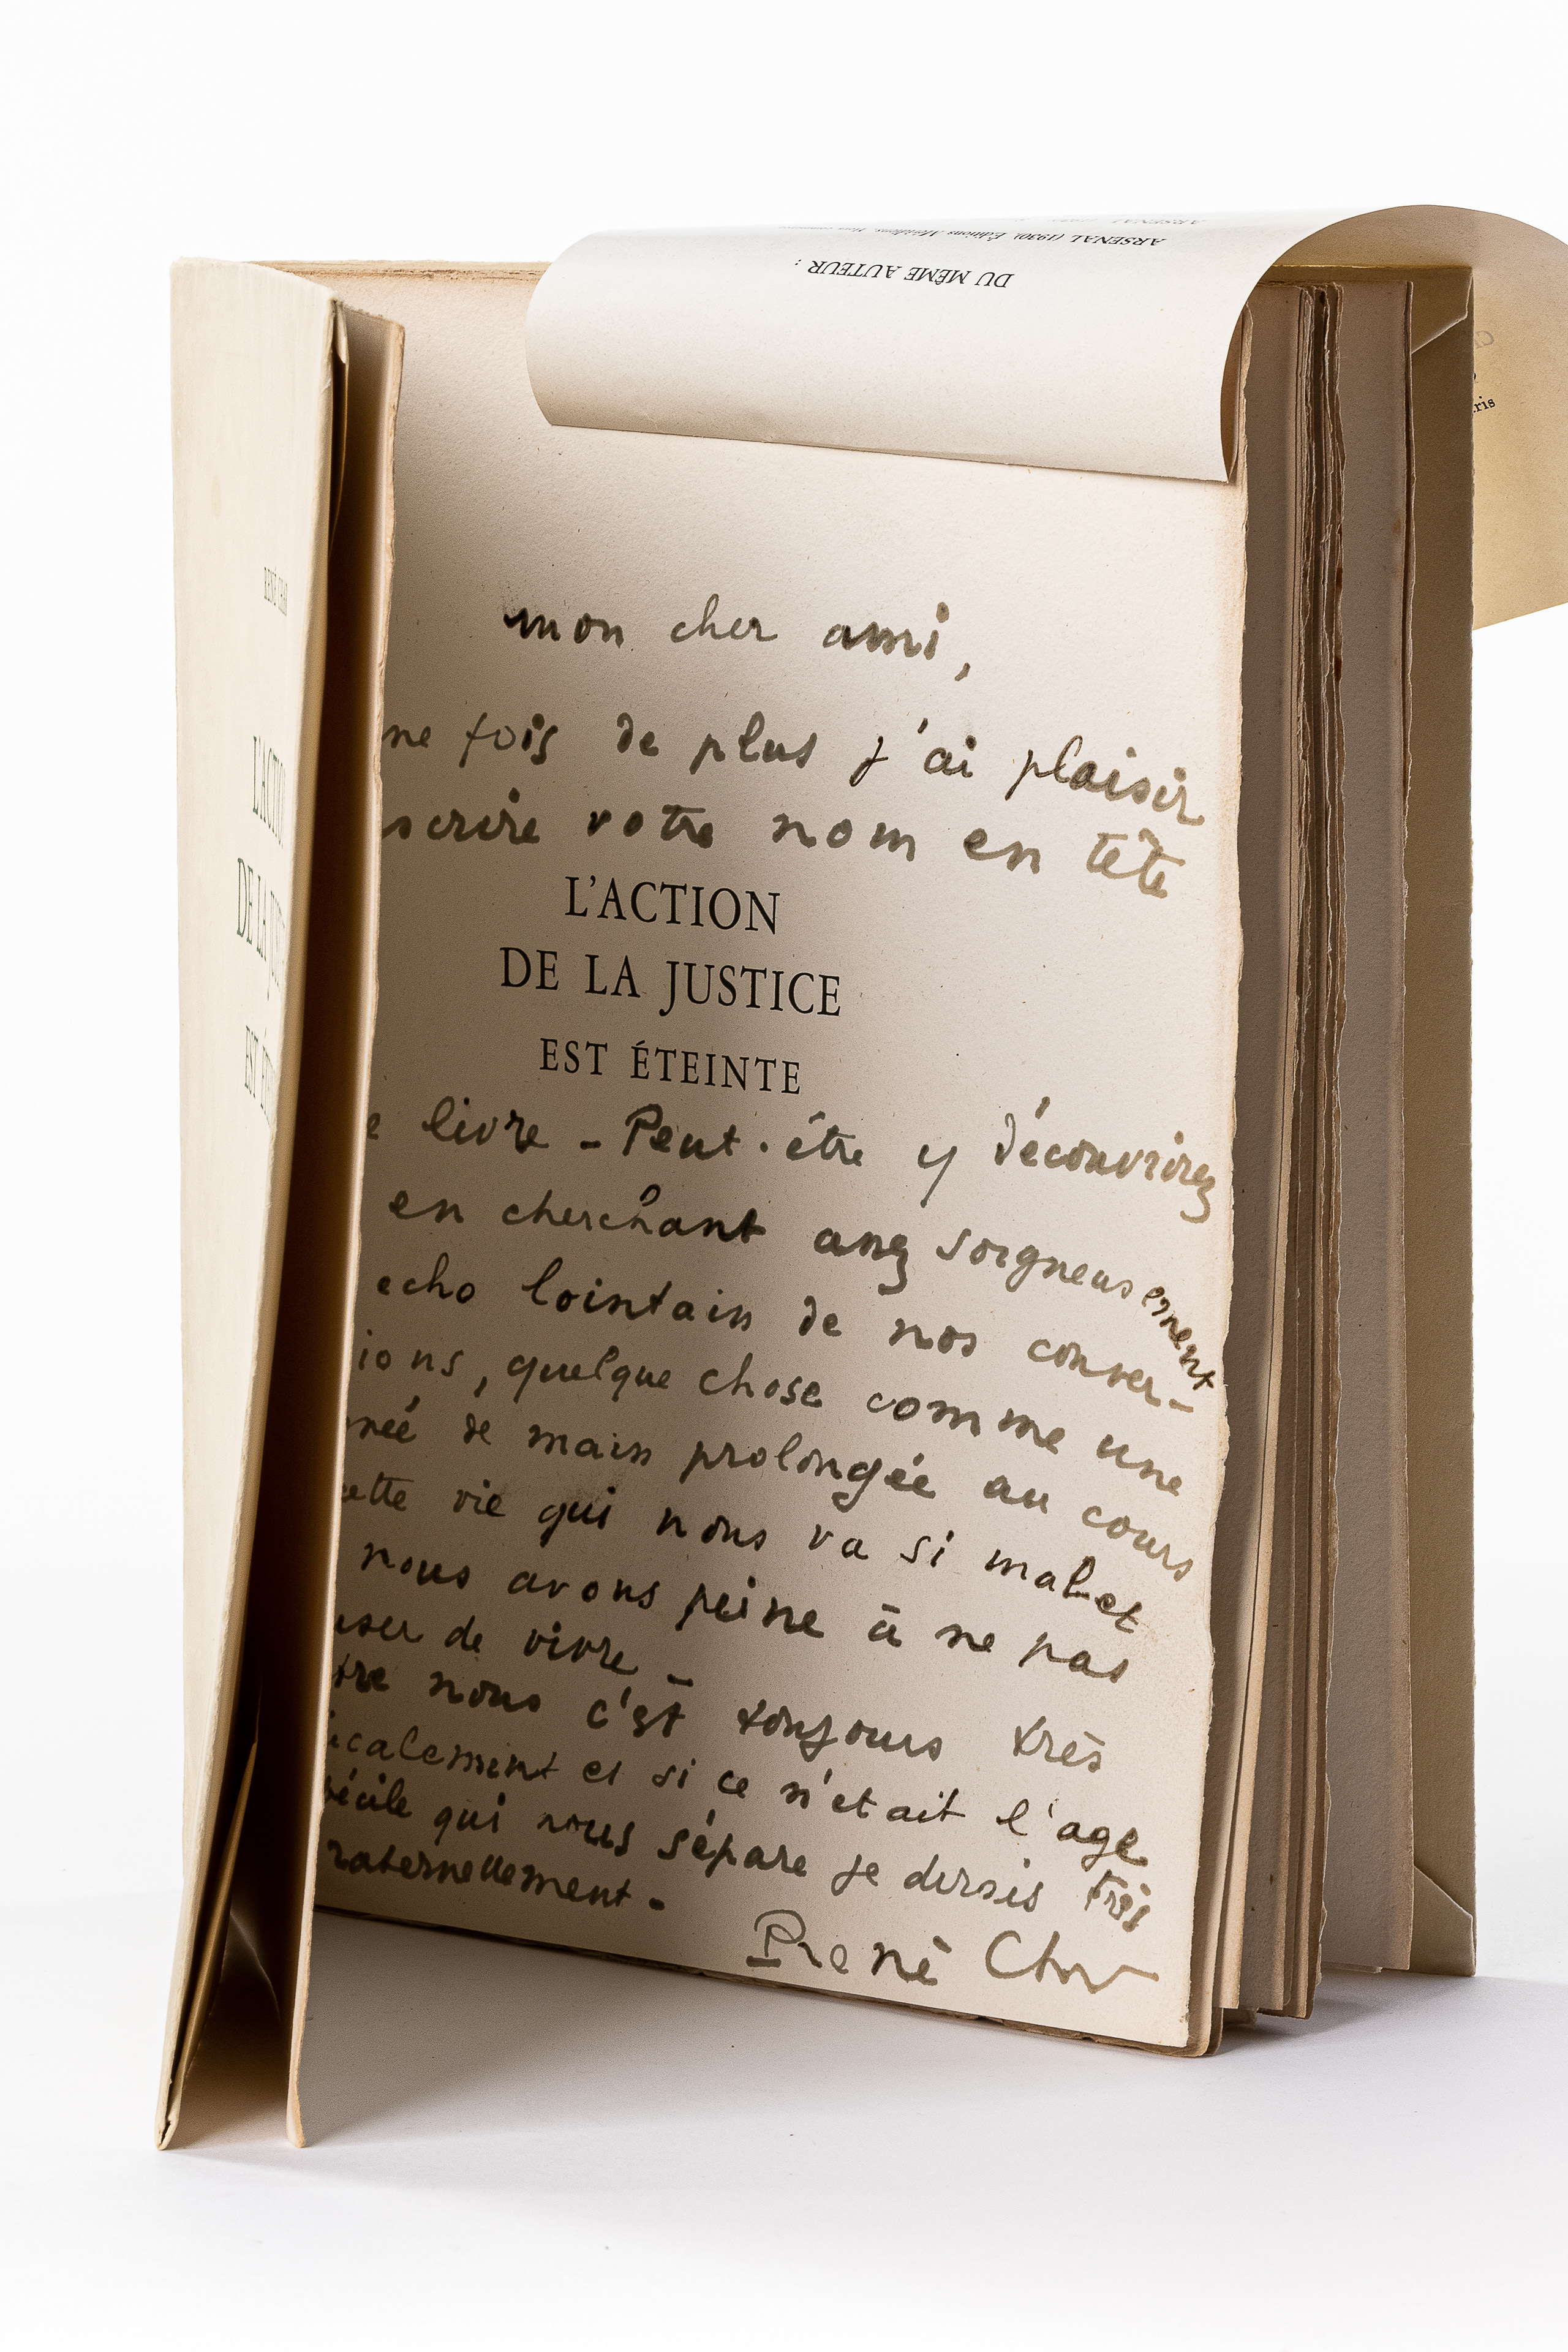 DU MÊME AUTEUR :
ARSENAL (1930). Éditions Méridiens.
RENÉ CHAR
L'ACTION
DE LA JUSTICE
EST
mon cher ami,
ne fois de plus j'ai plaisir
scrire votre nom en tête
L'ACTION
DE LA JUSTICE
EST ÉTEINTE
e livre - Peut-être y découvrirez
en cherchant assez soigneusement
echo lointain de nos conver-
ions, quelque chose comme une
née de main prolongée au cours
cette vie qui nous va si mal et
nous avons peine à ne pas
user de vivre -
tre nous c'est toujours très
icalement et si ce n'était l'age
bécile qui nous sépare je dirais très
raternellement -
René Char
ris